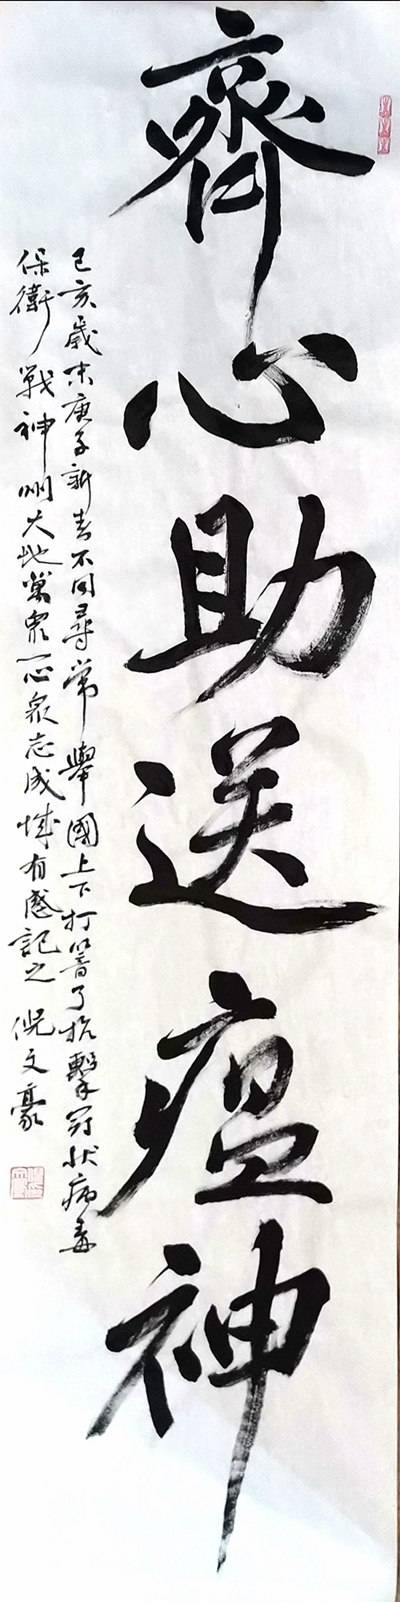 齊心助送瘟神
己亥歲末庚子新春不同尋常舉國上下打響了抗擊冠狀病毒
保衛戰神州大地萬眾一心眾志成城有感記之 倪文豪